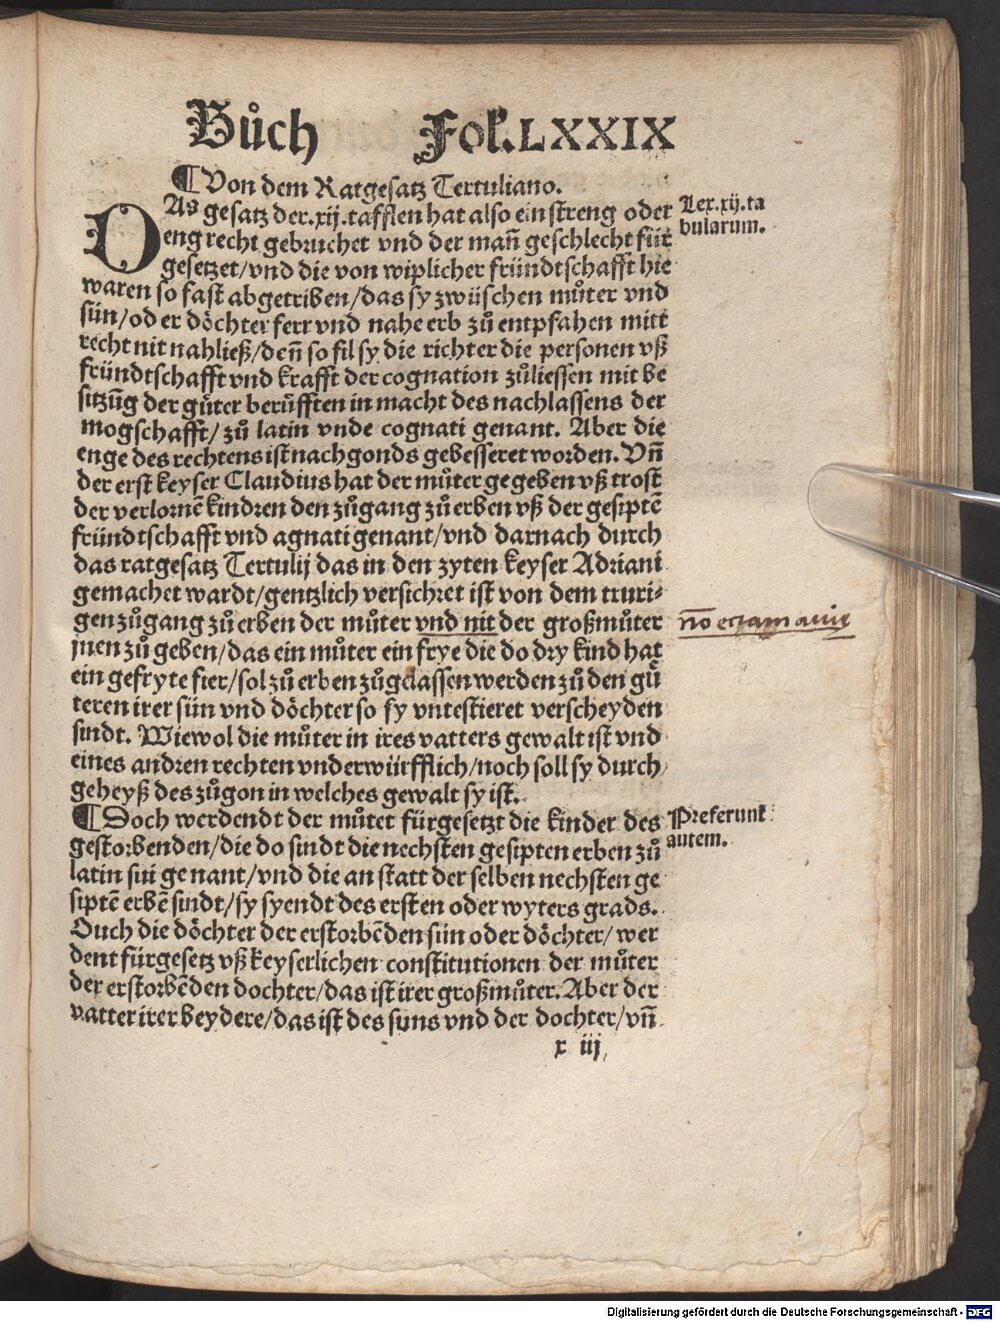 Bůch Fol. LXXIX
¶Von dem Ratgesatz Tertuliano.
DAs gesatz der .xij. tafflen hat also ein streng oder
eng recht gebruchet vnd der mañ geschlecht für
gesetzet/vnd die von wiplicher fründtschafft hie
waren so fast abgetriben/das sy zwüschen můter vnd
sün/oder döchter ferr vnd nahe erb zů entpfahen mitt
recht nit nahließ/deñ so fil sy die richter die personen vß
fründtschafft vnd krafft der cognation zůliessen mit be
sitzūg der gůter berůfften in macht des nachlassens der
mogschafft/ zů latin vnde cognati genant. Aber die
enge des rechtens ist nachgonds gebesseret worden. Vñ
der erst keyser Claudius hat der můter gegeben vß trost
der verlornē kindren den zůgang zů erben vß der gesiptē
fründtschafft vnd agnati genant/vnd darnach durch
das ratgesatz Tertulij das in den zyten keyser Adriani
gemachet wardt/gentzlich versichret ist von dem truri⸗
gen zůgang zů erben der můter vnd nit der großmůter
jnen zů geben/das ein můter ein frye die do dry kind hat
ein gefryte fier/sol zů erben zůgelassen werden zů den gů
teren irer sün vnd döchter so sy vntestieret verscheyden
sindt. Wiewol die můter in ires vatters gewalt ist vnd
eines andren rechten vnderwürfflich/noch soll sy durch
geheyß des zůgon in welches gewalt sy ist.
¶Doch werdendt der můter fürgesetzt die kinder des
gestorbenden/die do sindt die nechsten gesipten erben zů
latin sui genant/vnd die an statt der selben nechsten ge
siptē erbē sindt/sy syendt des ersten oder wyters grads.
Ouch die döchter der erstorbēden sün oder döchter/wer
dent fürgesetz vß keyserlichen constitutionen der můter
der erstorbēden dochter/das ist irer großmůter. Aber der
vatter irer beydere/das ist des suns vnd der dochter/vñ
x iij
Lex.xij.ta
bularum.
nō etiam auie
Preferunt
autem.
Digitalisierung gefördert durch die Deutsche Forschungsgemeinschaft - DFG